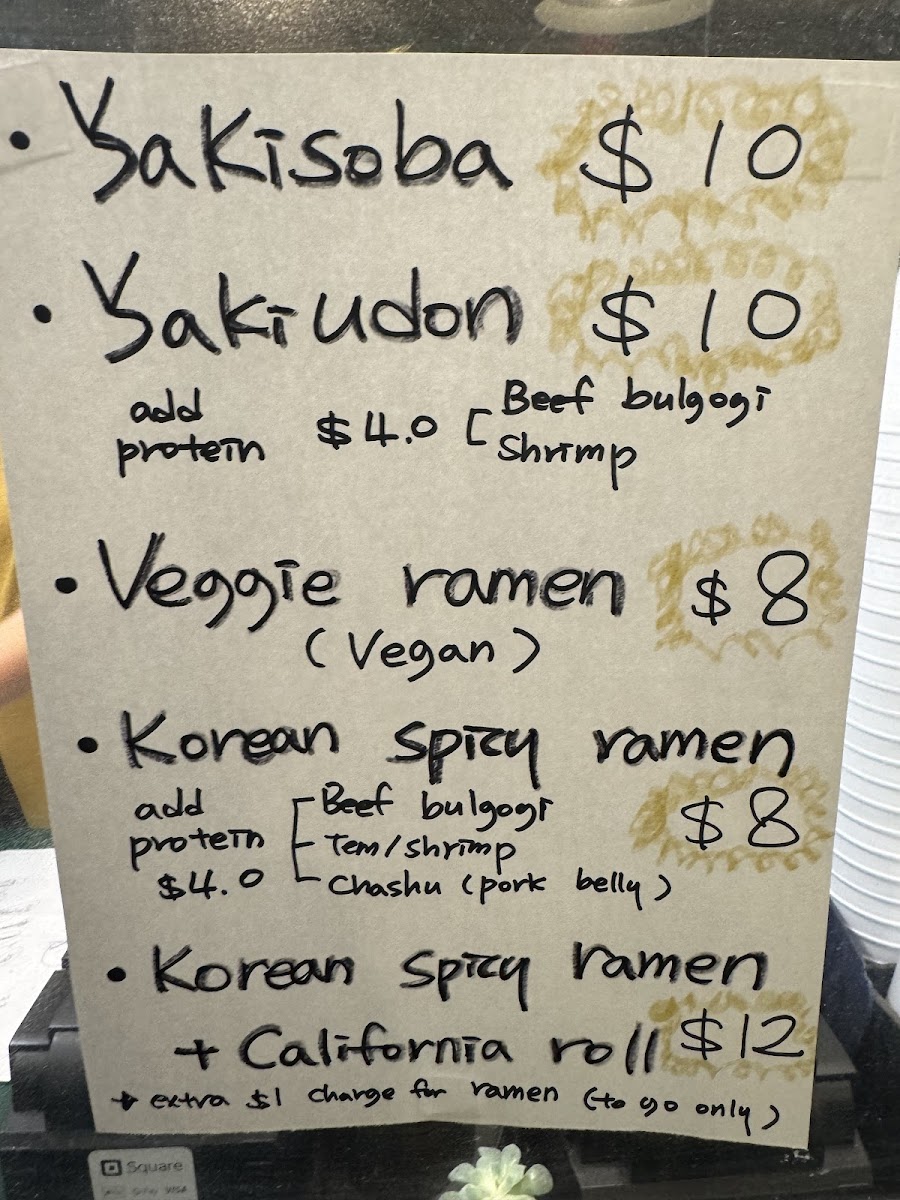 • Yakisoba $10
• Yakiudon $10
add protein $4.0 [ Beef bulgogi
Shrimp
• Veggie ramen $8
(Vegan)
• Korean spicy ramen
$8
add protein $4.0 [ Beef bulgogi
Tem/shrimp
Chashu (pork belly)
• Korean spicy ramen
+ California roll $12
+ extra $1 charge for ramen (to go only)
Square
VISA